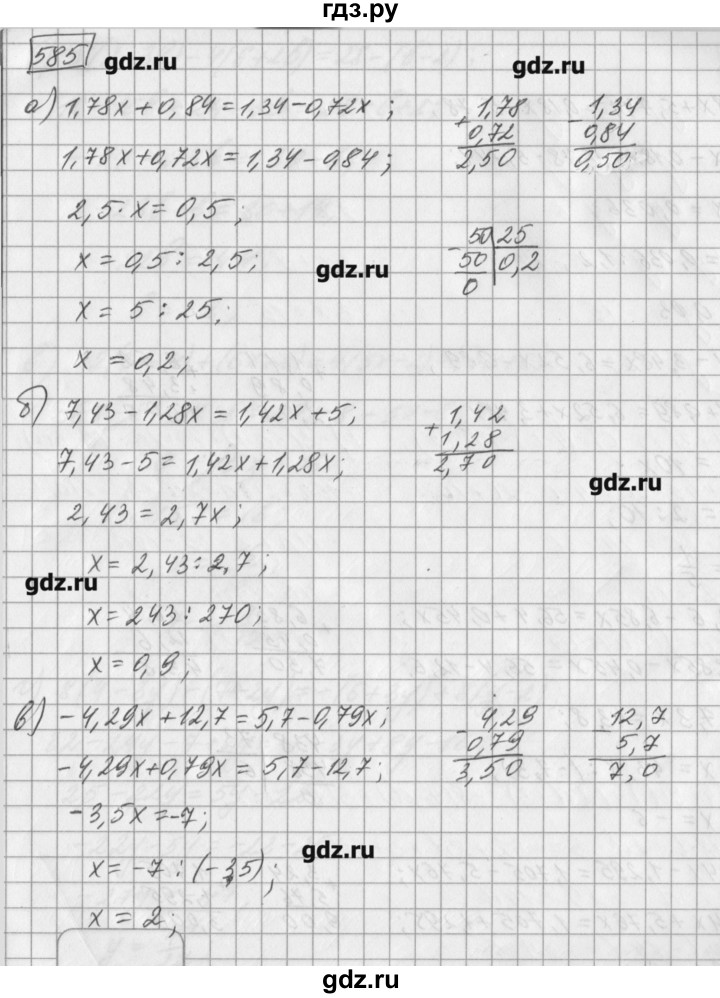 гдз.ру
585
gdz.ru
gdz.ru
а) 1,78x + 0,84 = 1,34 - 0,72x ;
+ 1,78
0,72
2,50
- 1,34
0,84
0,50
1,78x + 0,72x = 1,34 - 0,84 ;
2,5 · x = 0,5 ;
x = 0,5 : 2,5 ;
gdz.ru
- 50 25
50 0,2
0
x = 5 : 25 ;
x = 0,2 ;
б) 7,43 - 1,28x = 1,42x + 5 ;
+ 1,42
1,28
2,70
7,43 - 5 = 1,42x + 1,28x ;
gdz.ru
2,43 = 2,7x ;
x = 2,43 : 2,7 ;
gdz.ru
x = 243 : 270 ;
x = 0,9 ;
в) - 4,29x + 12,7 = 5,7 - 0,79x ;
- 4,29
0,79
3,50
- 12,7
5,7
7,0
- 4,29x + 0,79x = 5,7 - 12,7 ;
- 3,5x = -7 ;
gdz.ru
x = -7 : (-3,5) ;
x = 2 ;
gdz.ru